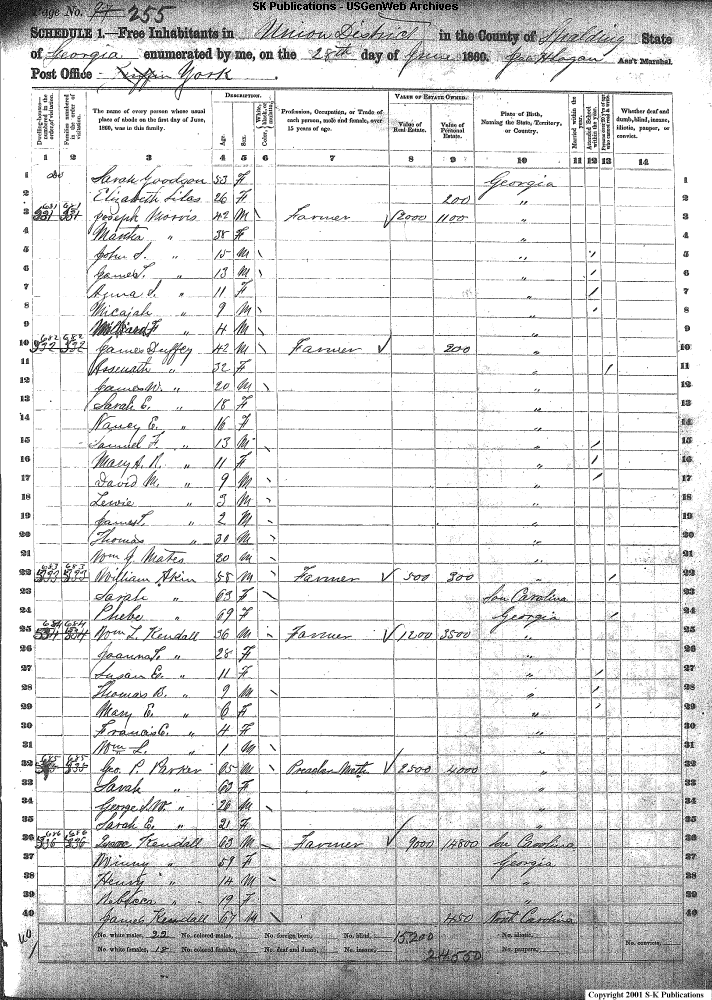 SK Publications - USGenWeb Archives
Page No. 255
SCHEDULE 1.—Free Inhabitants in Union District in the County of Spalding State
of Georgia enumerated by me, on the 28th day of June 1860. Ass't Marshal.
Post Office York
DESCRIPTION. VALUE OF ESTATE OWNED.
Dwelling-houses—numbered in the order of visitation. Families numbered in the order of visitation. The name of every person whose usual place of abode on the first day of June, 1860, was in this family. Age. Sex. Color, White, black, or mulatto. Profession, Occupation, or Trade of each person, male and female, over 15 years of age. Value of Real Estate. Value of Personal Estate. Place of Birth, Naming the State, Territory, or Country. Married within the year. Attended School within the year. Persons over 20 y'rs of age who cannot read & write. Whether deaf and dumb, blind, insane, idiotic, pauper, or convict.
1 2 3 4 5 6 7 8 9 10 11 12 13 14
1 Sarah Goodson 53 F Georgia 1
2 Elizabeth 26 F 200 " 2
3 681 681 Joseph Norris 42 M \ Farmer 2000 1100 " 3
4 Martha " 38 F " 4
5 John S. " 15 M \ " / 5
6 James T. " 13 M \ " / 6
7 " 11 F " / 7
8 Micajah " 9 M \ " / 8
9 " 4 M \ " 9
10 682 682 James Duffey 42 M \ Farmer 200 " 10
11 " 32 F " / 11
12 James W. " 20 M \ " 12
13 Sarah E. " 18 F " 13
14 Nancy E. " 16 F " 14
15 Samuel F. " 13 M " / 15
16 Mary A. R. " 11 F \ " / 16
17 David M. " 9 M \ " / 17
18 Lewis " 3 M \ " 18
19 James T. " 2 M \ " 19
20 Thomas " 30 M \ " 20
21 Wm J. Mates 20 M \ " 21
22 683 683 William Akin 58 M \ Farmer 500 300 " / 22
23 Sarah " 63 F \ Sou Carolina 23
24 Phebe " 69 F Georgia / 24
25 684 684 Wm L. Kendall 36 M \ Farmer 1200 3500 " 25
26 Joanna L. " 28 F " 26
27 Susan E. " 11 F " / 27
28 Thomas B. " 9 M \ " / 28
29 Mary E. " 6 F " / 29
30 Francis E. " 4 F " 30
31 Wm L. " 1 M \ " 31
32 685 685 Geo. P. Parker 65 M \ 2500 4000 " 32
33 Sarah " 60 F " 33
34 George S. W. " 26 M \ " 34
35 Sarah E. " 21 F " 35
36 686 686 Isaac Kendall 63 M \ Farmer 9000 14800 Sou Carolina 36
37 Winny " 59 F Georgia 37
38 Henry " 14 M \ " 38
39 Rebecca " 19 F " 39
40 Kendall 67 M \ 450 North Carolina 40
No. white males, 22 No. colored males, No. foreign born, No. blind, 15,200 No. idiotic, No. convicts,
No. white females, 18 No. colored females, No. deaf and dumb, No. insane, 24550 No. paupers,
Copyright 2001 S-K Publications